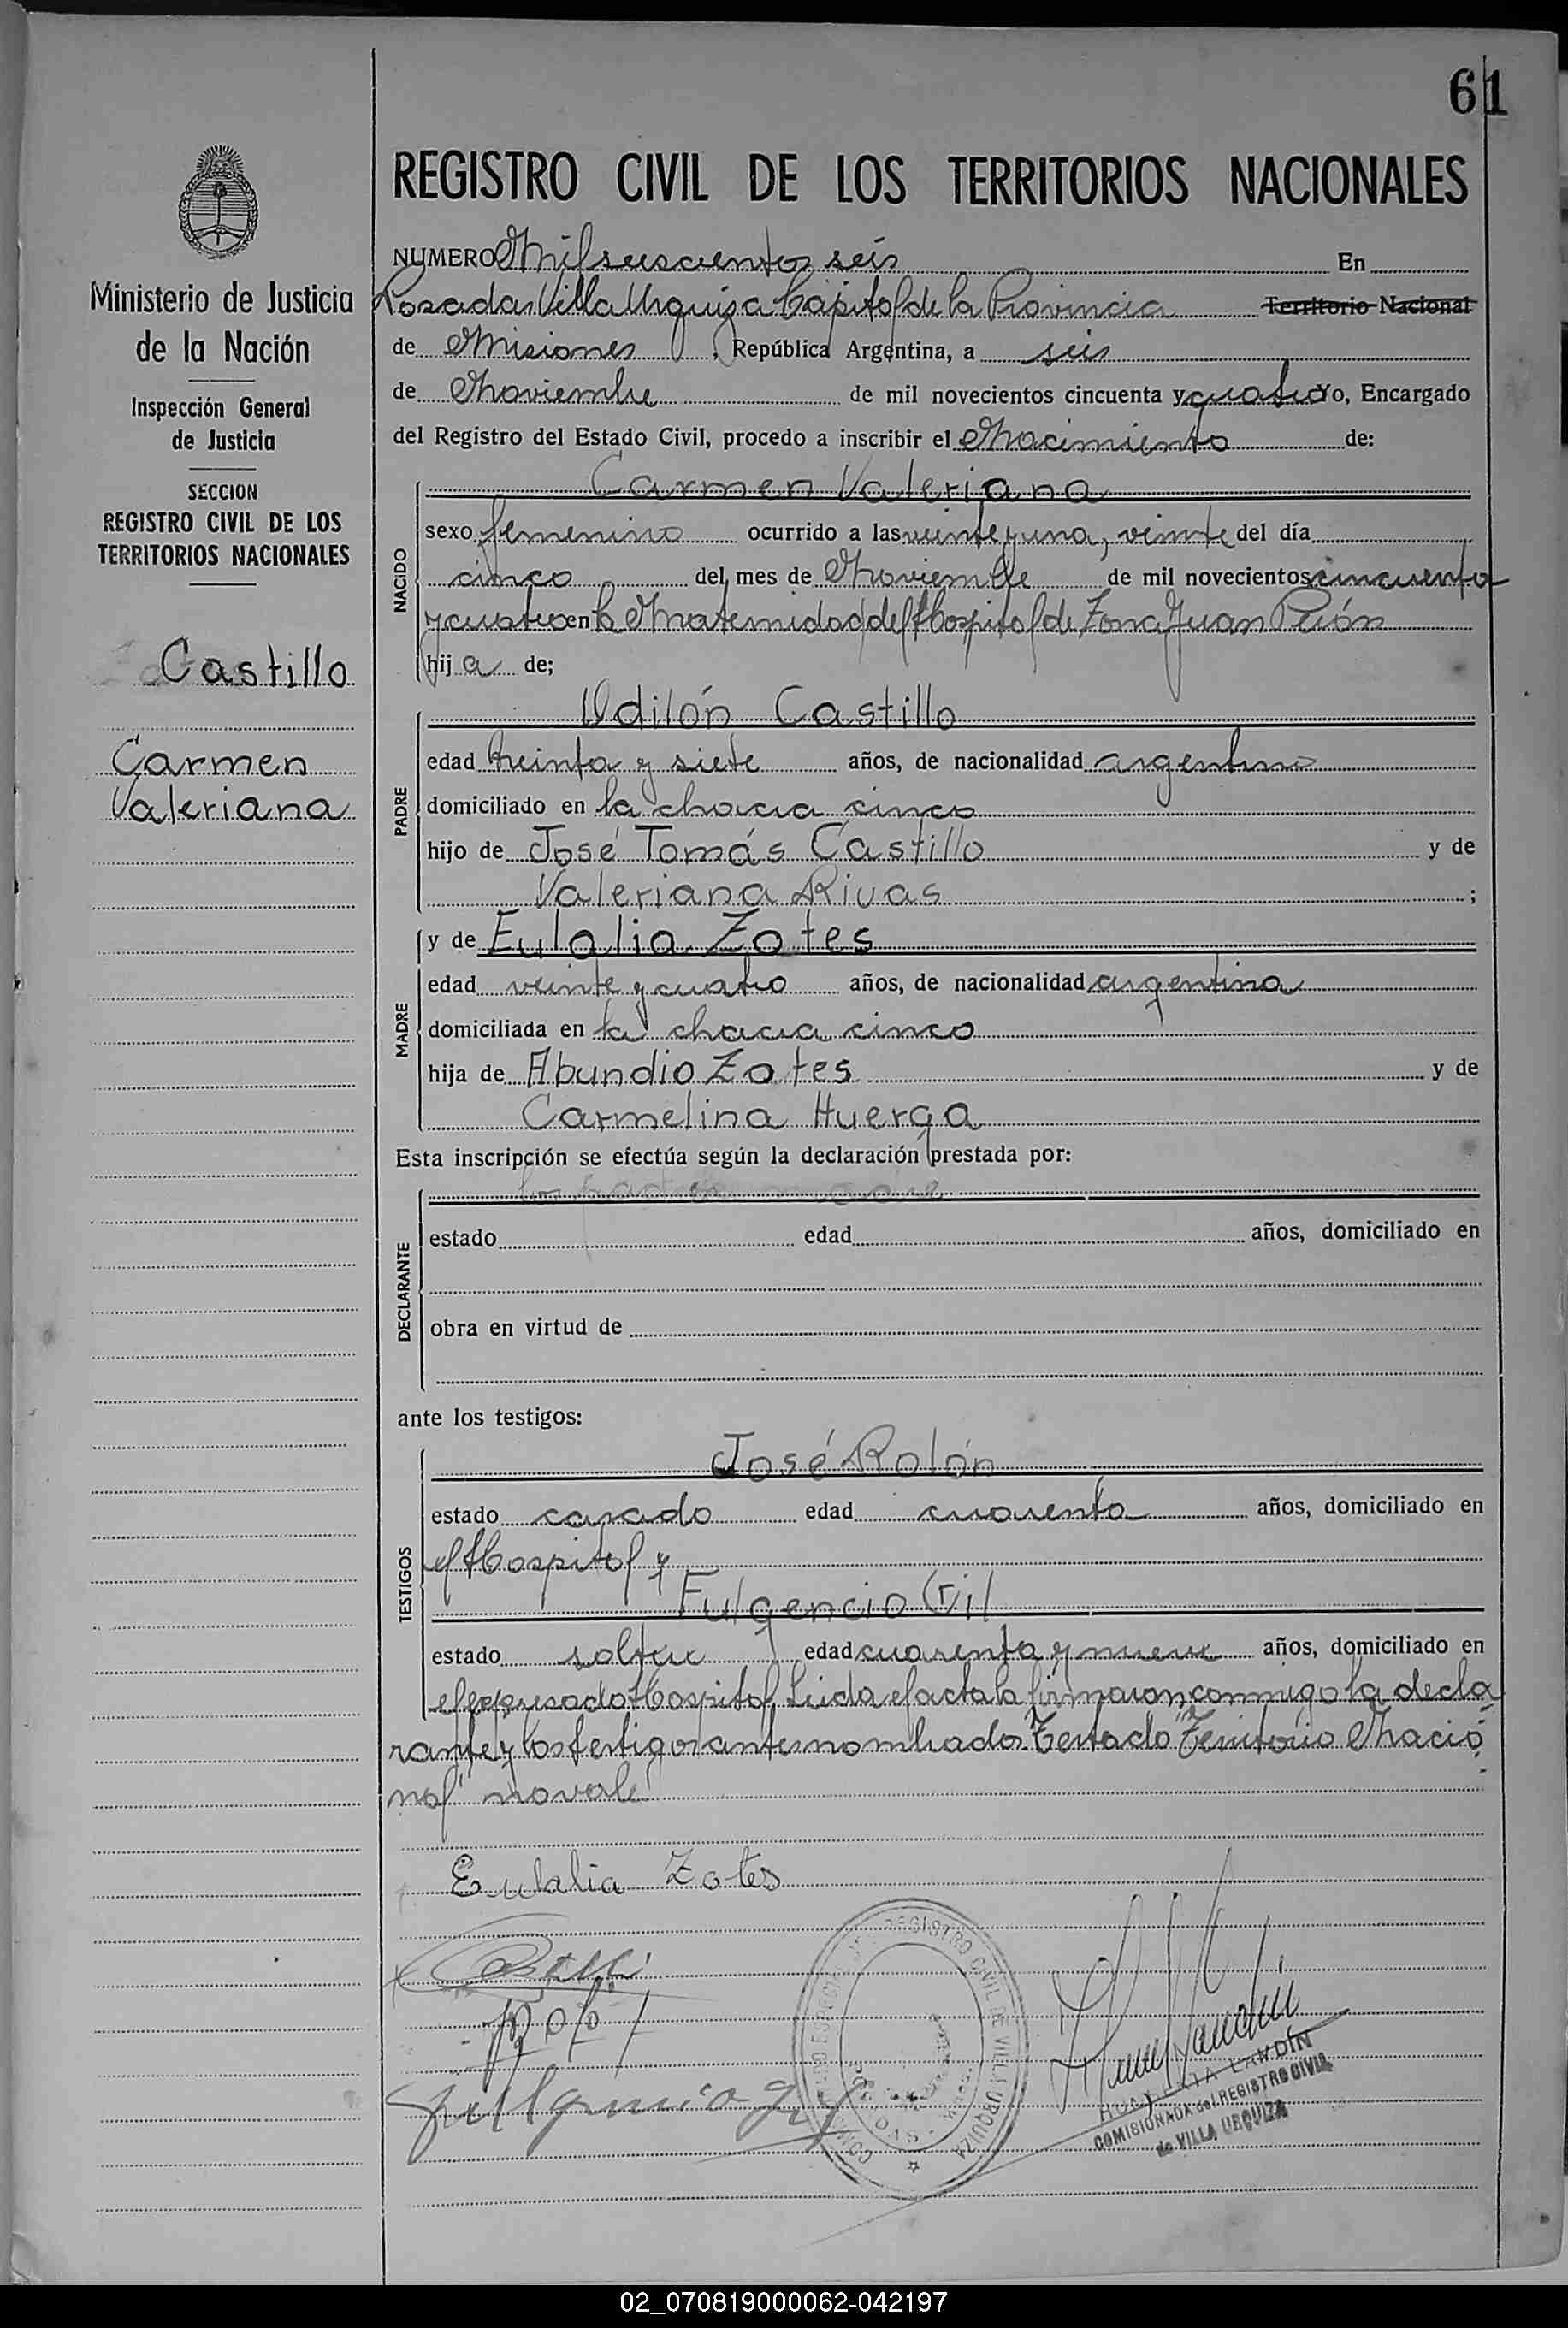 61
REGISTRO CIVIL DE LOS TERRITORIOS NACIONALES
NUMERO Mil seiscientos seis En
Posadas Villa Urquiza Capital de la Provincia Territorio Nacional
de Misiones, República Argentina, a seis
de Noviembre de mil novecientos cincuenta y cuatro Yo, Encargado
del Registro del Estado Civil, procedo a inscribir el Nacimiento de:
Ministerio de Justicia
de la Nación
Inspección General
de Justicia
SECCION
REGISTRO CIVIL DE LOS
TERRITORIOS NACIONALES
Castillo
Carmen
Valeriana
NACIDO
Carmen Valeriana
sexo femenino ocurrido a las veinte y una, veinte del día
cinco del mes de Noviembre de mil novecientos cincuenta
y cuatro en la Maternidad del Hospital de Zona Juan Perón
hija de;
PADRE
Udilón Castillo
edad treinta y siete años, de nacionalidad argentino
domiciliado en la chacra cinco
hijo de José Tomás Castillo y de
Valeriana Rivas ;
MADRE
y de Eulalia Zotes
edad veinte y cuatro años, de nacionalidad argentina
domiciliada en la chacra cinco
hija de Abundio Zotes y de
Carmelina Huerga
Esta inscripción se efectúa según la declaración prestada por:
DECLARANTE
madre
estado edad años, domiciliado en
obra en virtud de
ante los testigos:
TESTIGOS
José Rolón
estado casado edad cuarenta años, domiciliado en
el Hospital y
Fulgencio Gil
estado soltero edad cuarenta y nueve años, domiciliado en
el expresado Hospital. Leida el acta la firmaron conmigo la decla
rante y los testigos antes nombrados. Testado "Territorio Nacio
nal" no vale
Eulalia Zotes
REGISTRO CIVIL DE VILLA URQUIZA
POSADAS
LANDIN
COMISIONADA del REGISTRO CIVIL
de VILLA URQUIZA
02_070819000062-042197